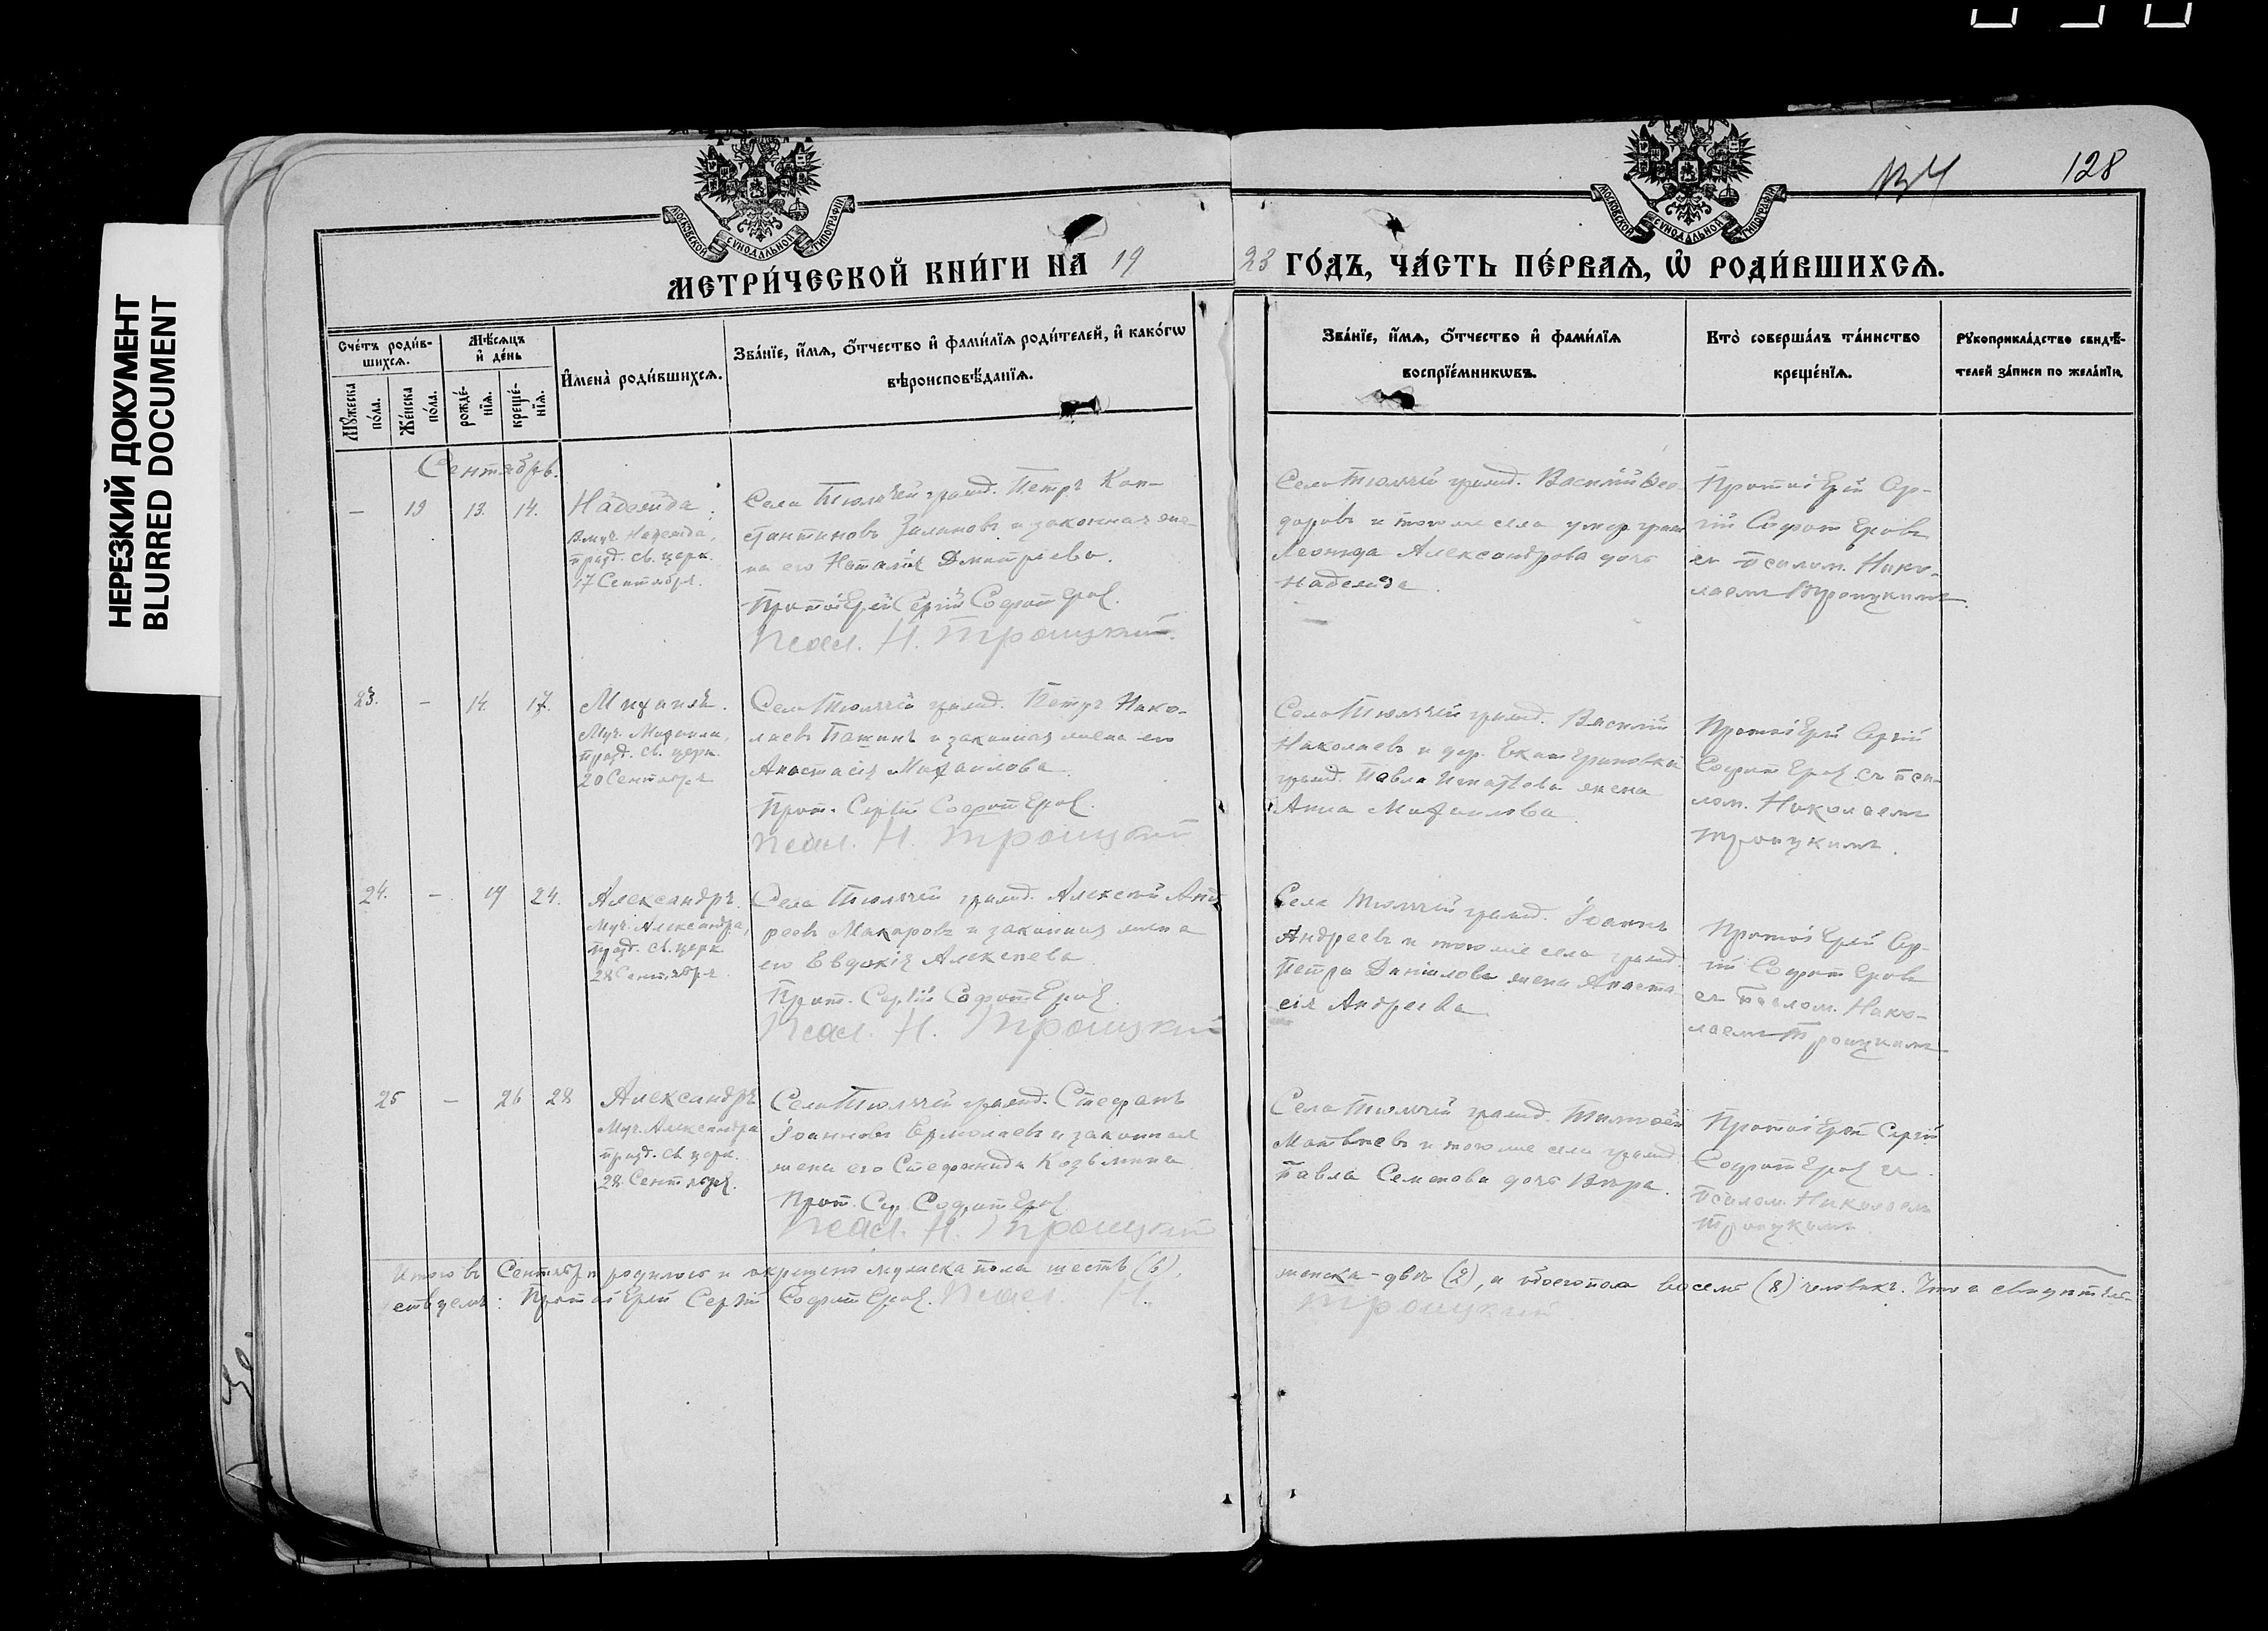 НЕРЕЗКИЙ ДОКУМЕНТ
BLURRED DOCUMENT
128
МОСКОВСКОЙ СѴНОДАЛЬНОЙ ТИПОГРАФІИ
МОСКОВСКОЙ СѴНОДАЛЬНОЙ ТИПОГРАФІИ
МЕТРИ́ЧЕСКОЙ КНИ́ГИ НА 19 23 ГО́ДЪ, ЧА́СТЬ ПЕ́РВАѦ, Ѡ РОДИ́ВШИХСѦ.
Сче́тъ роди́в-
шихсѧ.
Мꙋжеска по́ла.
Же́нска по́ла.
Мѣ́сѧцъ и҆ де́нь
рожде́-нїѧ.
креще́-нїѧ.
И҆мена̀ роди́вшихсѧ.
Зва́нїе, и҆́мѧ, ѻ҆́тчество и҆ фами́лїѧ роди́телей, и҆ како́гѡ
вѣроисповѣ́данїѧ.
Зва́нїе, и҆́мѧ, ѻ҆́тчество и҆ фами́лїѧ
воспрїе́мникѡвъ.
Кто̀ соверша́лъ та́инство
креще́нїѧ.
Рꙋкоприкла́дство свидѣ́-
телей за́писи по жела́нїю.
Сентябрь.
— 19 13. 14.
Надежда
Вмуч. Надежда,
празд. св. церк.
17 Сентября.
Села Тюлячей гражд. Петръ Кон-
стантиновъ и законная же-
на его Наталія Дмитріева.
Протоіерей Сергій Софотеров.
Псал. Н. Троицкий
Села Тюлячей гражд. Василій Ѳео-
доровъ и того же села умер. граж.
Леонида Александрова дочь
Надежда.
Протоіерей Сер-
гій Софотеровъ
съ псалом. Нико-
лаемъ Троицкимъ.
23. — 14. 17.
Михаилъ.
Муч. Михаила,
празд. св. церк.
20 Сентября
Села Тюлячей гражд. Петръ Нико-
лаевъ Пашинъ и законная жена его
Анастасія Михаилова.
Прот. Сергій Софотеров.
Псал. Н. Троицкий
Села Тюлячей гражд. Василій
Николаевъ и дер. Екатериновки
гражд. Павла Игнатьева жена
Анна Михаилова.
Протоіерей Сергій
Софотеров съ пса-
лом. Николаемъ
Троицкимъ.
24. — 19 24.
Александръ.
Муч. Александра,
празд. св. церк.
28 Сентября.
Села Тюлячей гражд. Алексѣй Анд
реевъ Макаровъ и законная жена
его Евдокія Алексеева.
Прот. Сергій Софотеров.
Псал. Н. Троицкий
Села Тюлячей гражд. Іоаннъ
Андреевъ и того же села гражд.
Петра Даніилова жена Анаста-
сія Андреева.
Протоіерей Сер-
гій Софотеровъ
съ псалом. Нико-
лаемъ Троицкимъ
25 — 26 28
Александръ
Муч. Александра
празд. св. церк.
28 Сентября.
Села Тюлячей гражд. Стефанъ
Іоанновъ Ермолаевъ и законная
жена его Стефанида Козьмина.
Прот. Сер. Софотеров
Псал. Н. Троицкий
Села Тюлячей гражд. Тимоѳей
Матвѣевъ и того же села гражд.
Павла Семенова дочь Вѣра.
Протоіерей Сергій
Софотеров и
псалом. Николаемъ
Троицкимъ.
Итого въ Сентябрѣ родилось и окрещено мужеска пола шесть (6), женска - двѣ (2), а обоего пола восемь (8) человѣкъ. Что и свидѣтель-
ствуемъ: Протоіерей Сергій Софотеров. Псал. Н. Троицкий